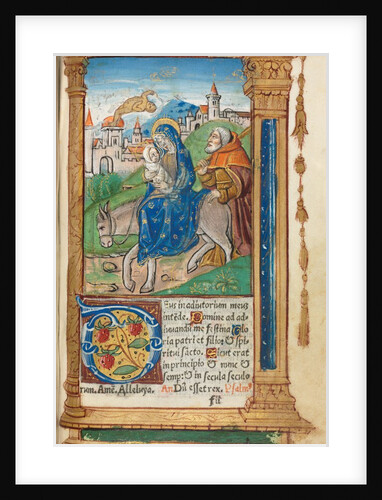 Eus in adiutorium meum
intēde. Domine ad ad
iuuandū me festina. Glo
ria patri et filio: & spi
ritui sācto. Sicut erat
in principio & nunc &
semp: & in secula seculo
rum. Amē. Alleluya. An Dū esset rex. Psalm⁹